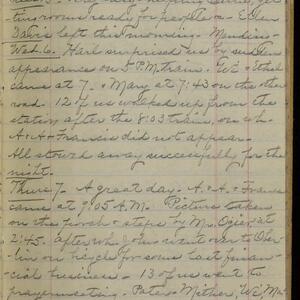 ting rooms ready for people on - Ellen
Davis left this morning. Mendius-
Wed. 6. Karl surprised us by sudden
appearance on 5 P.M. train. Wi & Ethel
came at 7 - Mary at 7:43 on the other
road. 12 of us walked up from the
station after the 8:03 train, on wh.
A. & A & Francis did not appear.
All stowed away successfully for the
night.
Thurs 7 - A great day - A. & A. & Francis
came at 9:05 A.M. Picture taken
on the porch & steps by Mr. Ogier at
2:45. after wh. John went over to Ober-
lin on bicycle for some last finan-
cial business - 13 of us went to
prayermeeting - Pater & Mother, Wi, Ma-